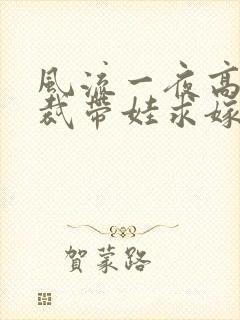 風流一夜高
裁帶娃求嫁
賀蒙路